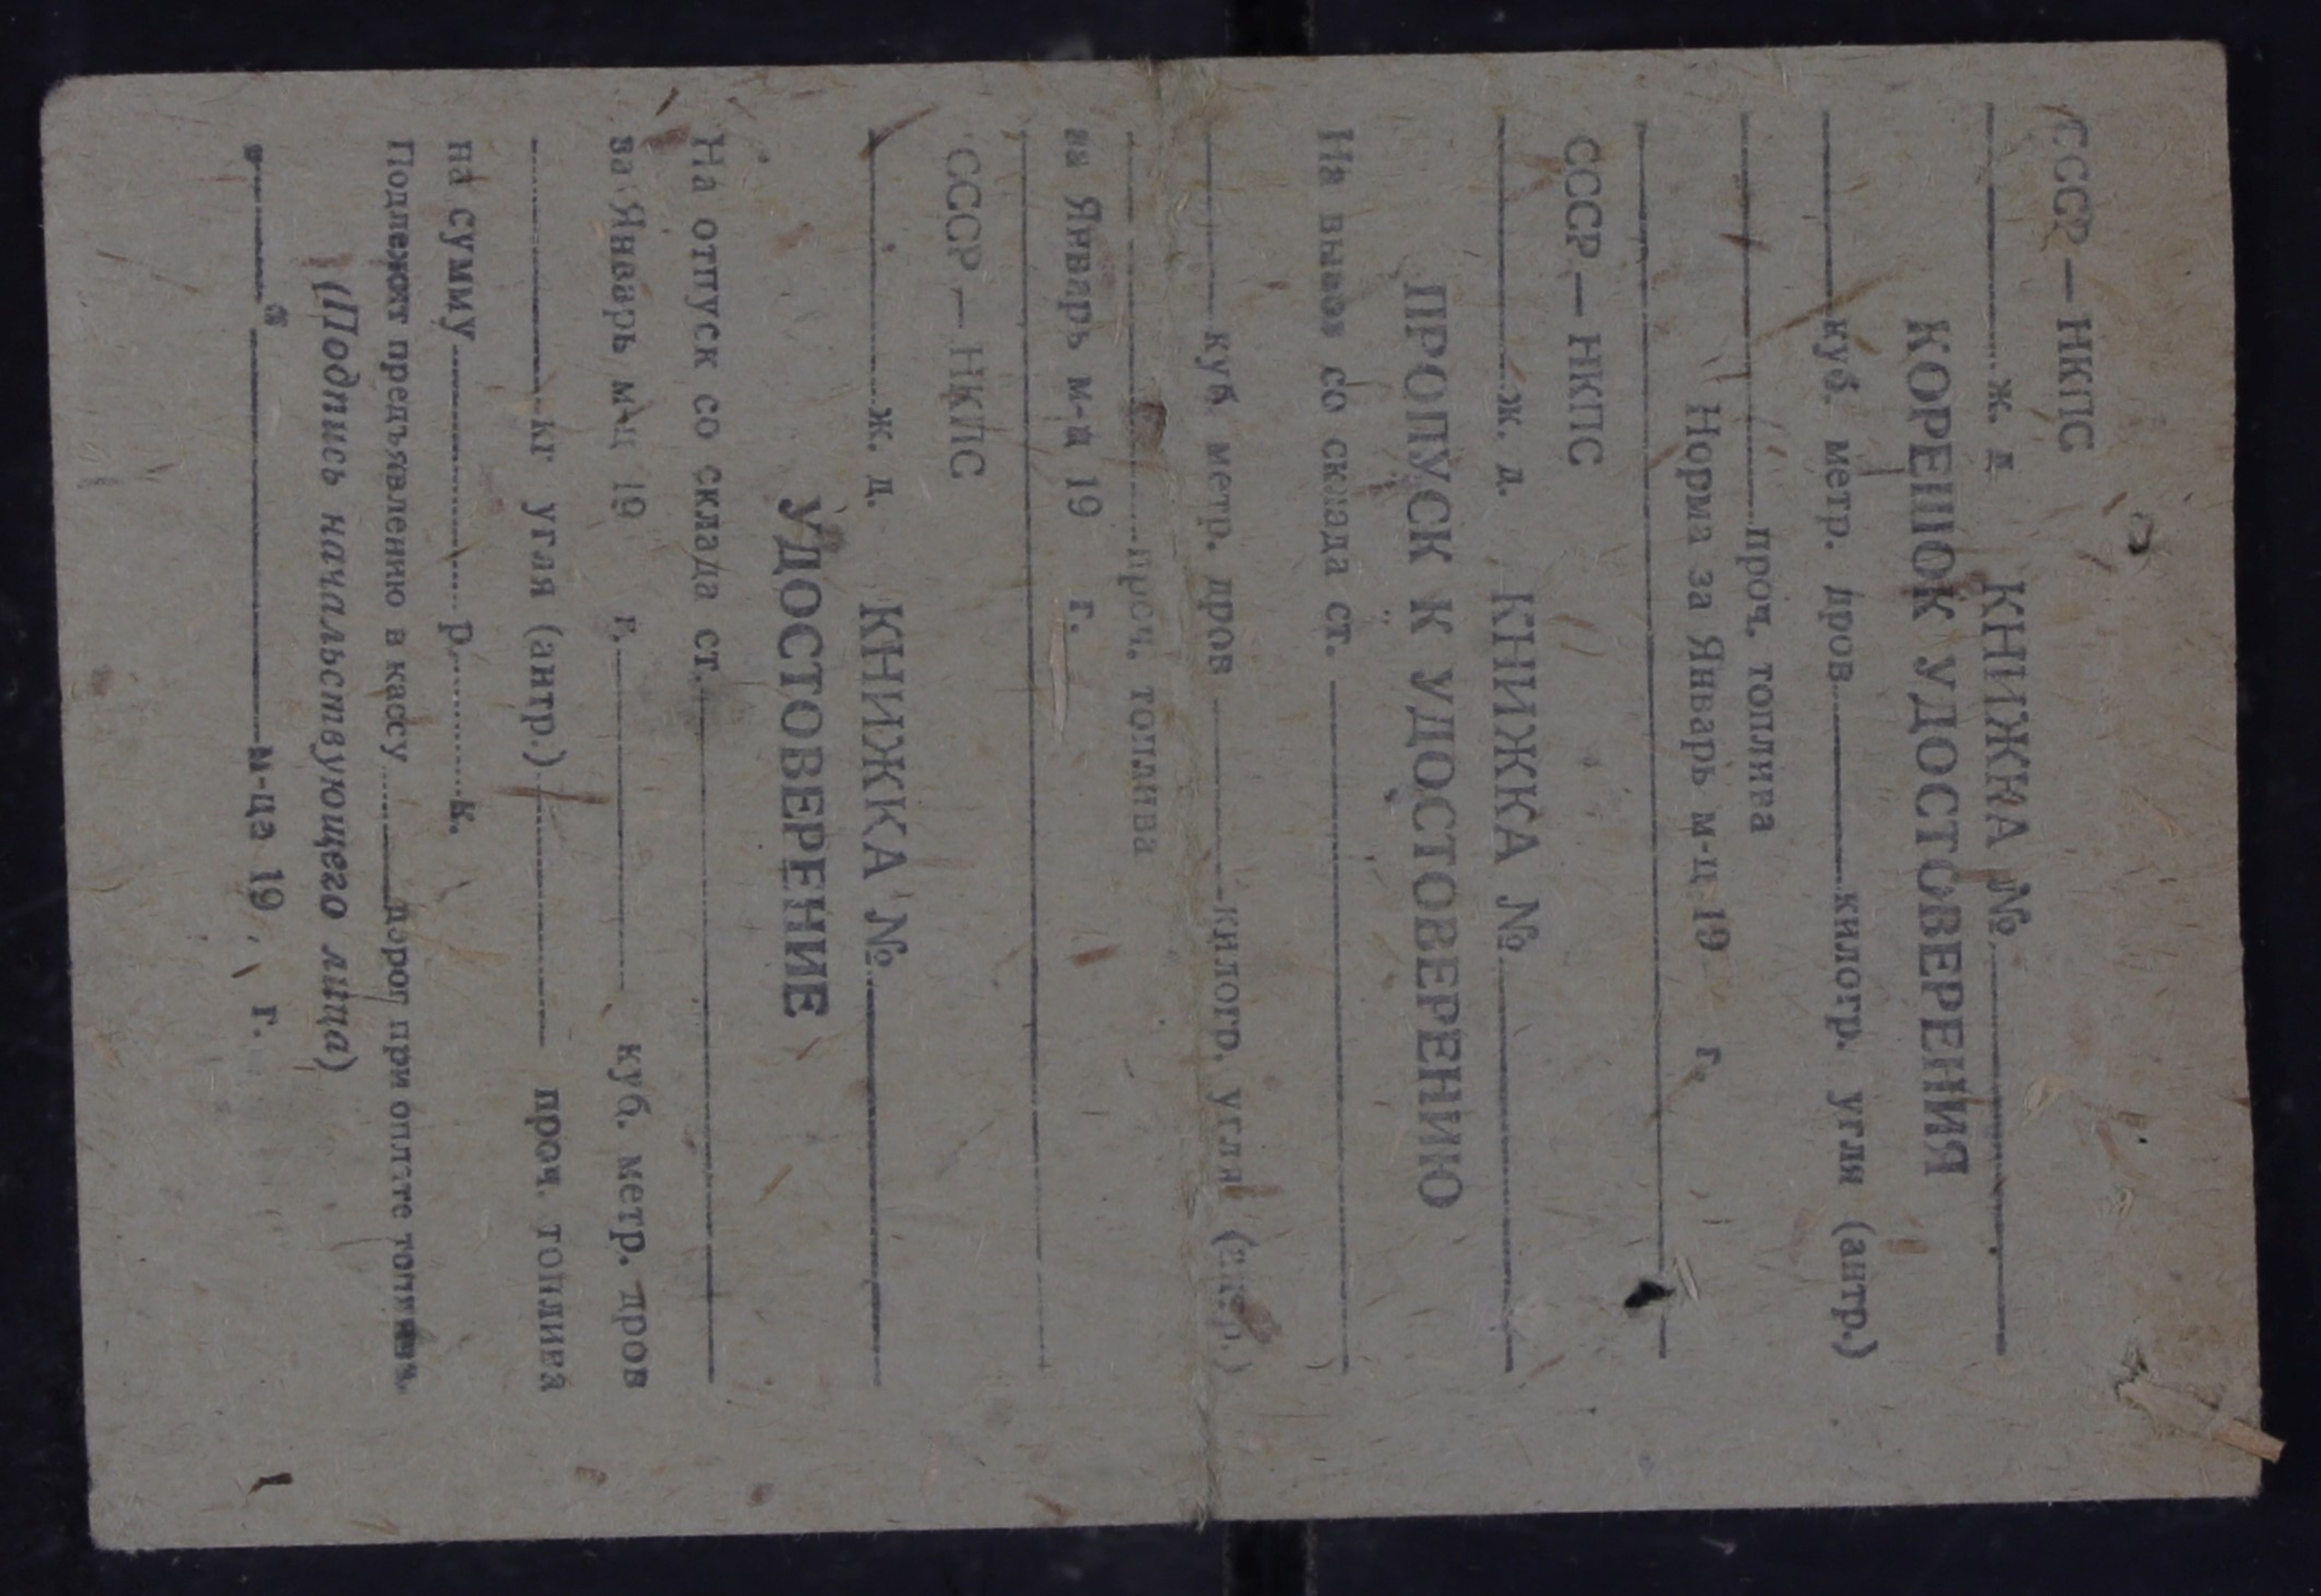 СССР — НКПС
ж. д КНИЖКА №
КОРЕШОК УДОСТОВЕРЕНИЯ
куб. метр. дров килогр. угля (антр.)
проч. топлива
Норма за Январь м-ц 19 г.
СССР — НКПС
ж. д. КНИЖКА №
ПРОПУСК К УДОСТОВЕРЕНИЮ
На вывоз со склада ст.
куб. метр. дров килогр. угля (антр.)
проч. топлива
за Январь м-ц 19 г.
СССР — НКПС
ж. д. КНИЖКА №
УДОСТОВЕРЕНИЕ
На отпуск со склада ст.
за Январь м-ц 19 г. куб. метр. дров
кг угля (антр.) проч. топлива
на сумму р. к.
Подлежит предъявлению в кассу дорог при оплате топлива.
(Подпись начальствующего лица)
м-ца 19 г.